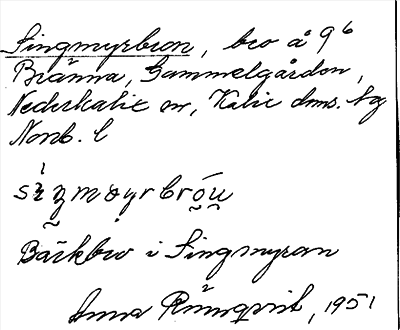 Singmyrbron, bro å 9⁶
Bränna, Gammelgården,
Nederkalix sn, Kalix dms. Lg
Nonb. l
Bäckbro i Singmyran
Anna Rönnqvist, 1951